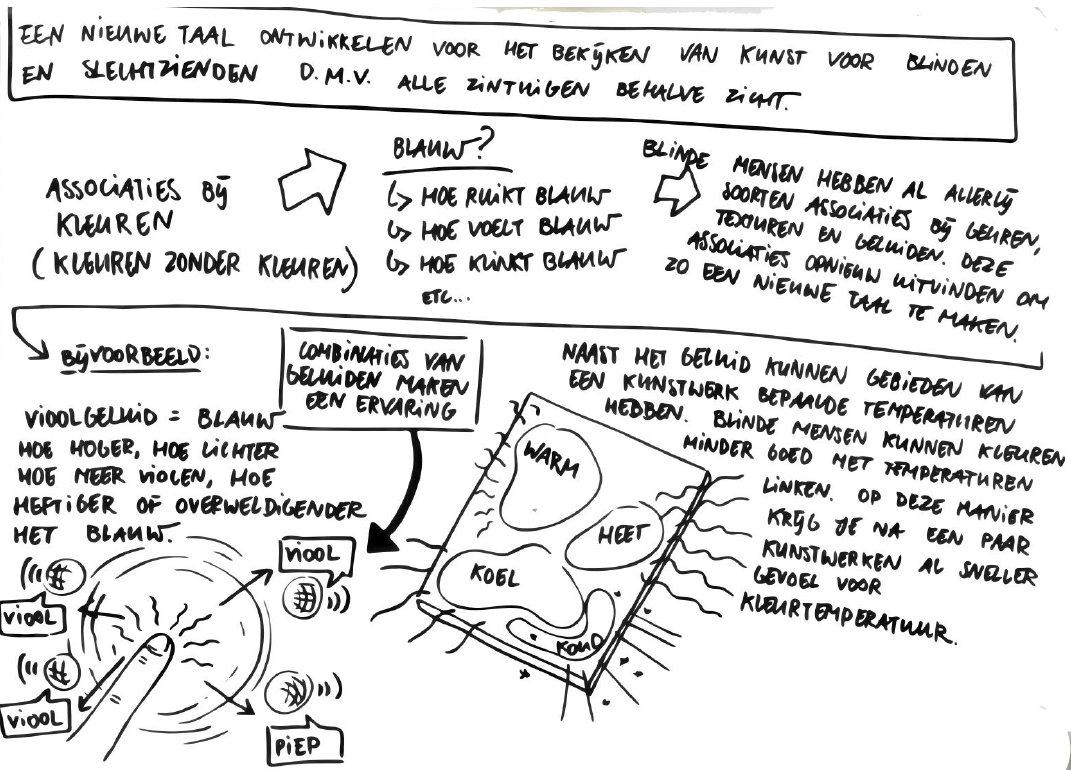 EEN NIEUWE TAAL ONTWIKKELEN VOOR HET BEKIJKEN VAN KUNST VOOR BLINDEN
EN SLECHTZIENDEN D.M.V. ALLE ZINTUIGEN BEHALVE ZICHT.
ASSOCIATIES BIJ
KLEUREN
(KLEUREN ZONDER KLEUREN)
BLAUW?
↳ HOE RUIKT BLAUW
↳ HOE VOELT BLAUW
↳ HOE KLINKT BLAUW
ETC...
BLINDE MENSEN HEBBEN AL ALLERLIJ
SOORTEN ASSOCIATIES BIJ GEUREN,
TEXTUREN EN GELUIDEN. DEZE
ASSOCIATIES OPNIEUW UITVINDEN OM
ZO EEN NIEUWE TAAL TE MAKEN.
BIJVOORBEELD:
VIOOLGELUID = BLAUW
HOE HOGER, HOE LICHTER
HOE MEER VIOLEN, HOE
HEFTIGER OF OVERWELDIGENDER
HET BLAUW.
COMBINATIES VAN
GELUIDEN MAKEN
EEN ERVARING
VIOOL
VIOOL
VIOOL
PIEP
NAAST HET GELUID KUNNEN GEBIEDEN VAN
EEN KUNSTWERK BEPAALDE TEMPERATUREN
HEBBEN. BLINDE MENSEN KUNNEN KLEUREN
MINDER GOED MET TEMPERATUREN
LINKEN. OP DEZE MANIER
KRIJG JE NA EEN PAAR
KUNSTWERKEN AL SNELLER
GEVOEL VOOR
KLEURTEMPERATUUR.
WARM
HEET
KOEL
KOUD